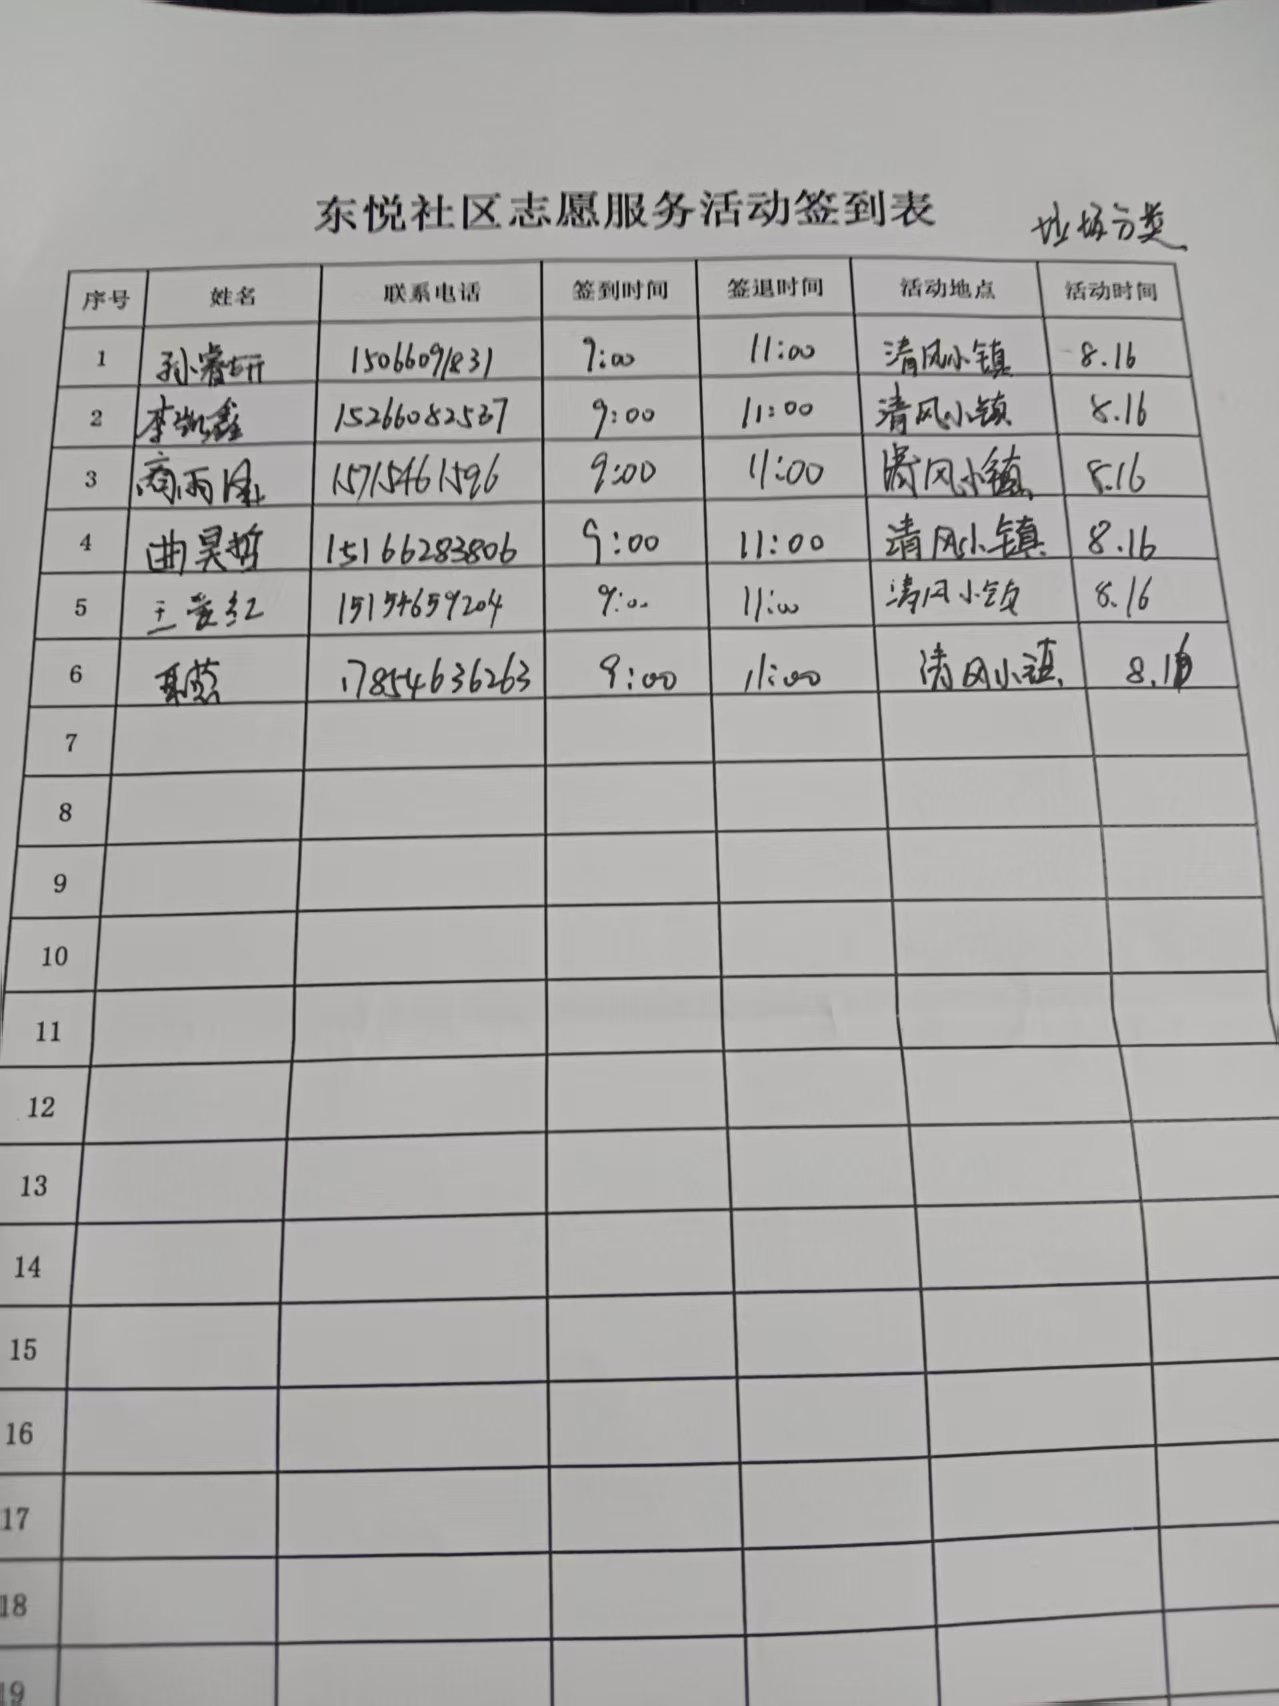 东悦社区志愿服务活动签到表 垃圾分类
序号 姓名 联系电话 签到时间 签退时间 活动地点 活动时间
1 孙睿妍 15066091831 9:00 11:00 清风小镇 8.16
2 李凯鑫 15266082537 9:00 11:00 清风小镇 8.16
3 商雨泽 15715461596 9:00 11:00 清风小镇 8.16
4 曲昊哲 15166283806 9:00 11:00 清风小镇 8.16
5 王爱红 15154659204 9:00 11:00 清风小镇 8.16
6 17854636263 9:00 11:00 清风小镇 8.16
7
8
9
10
11
12
13
14
15
16
17
18
19